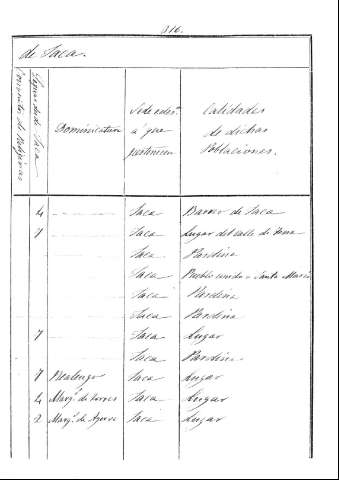 316.
de Jaca.
Conventos de Religiosas
Legua desde Jaca
Dominicatura
Sedeorden.
á que
pertenecen
Calidades
de dichas
Poblaciones.
4 Jaca Barrio de Jaca
7 Jaca Lugar del valle de
Jaca Pardina
Jaca Pueblo unido a Santa María
Jaca Pardina
Jaca Pardina
7 Jaca Lugar
Jaca Pardina
7 Realengo Jaca Lugar
4 Marq.s de Torres Jaca Lugar
2 Marq.s de Ayerve Jaca Lugar